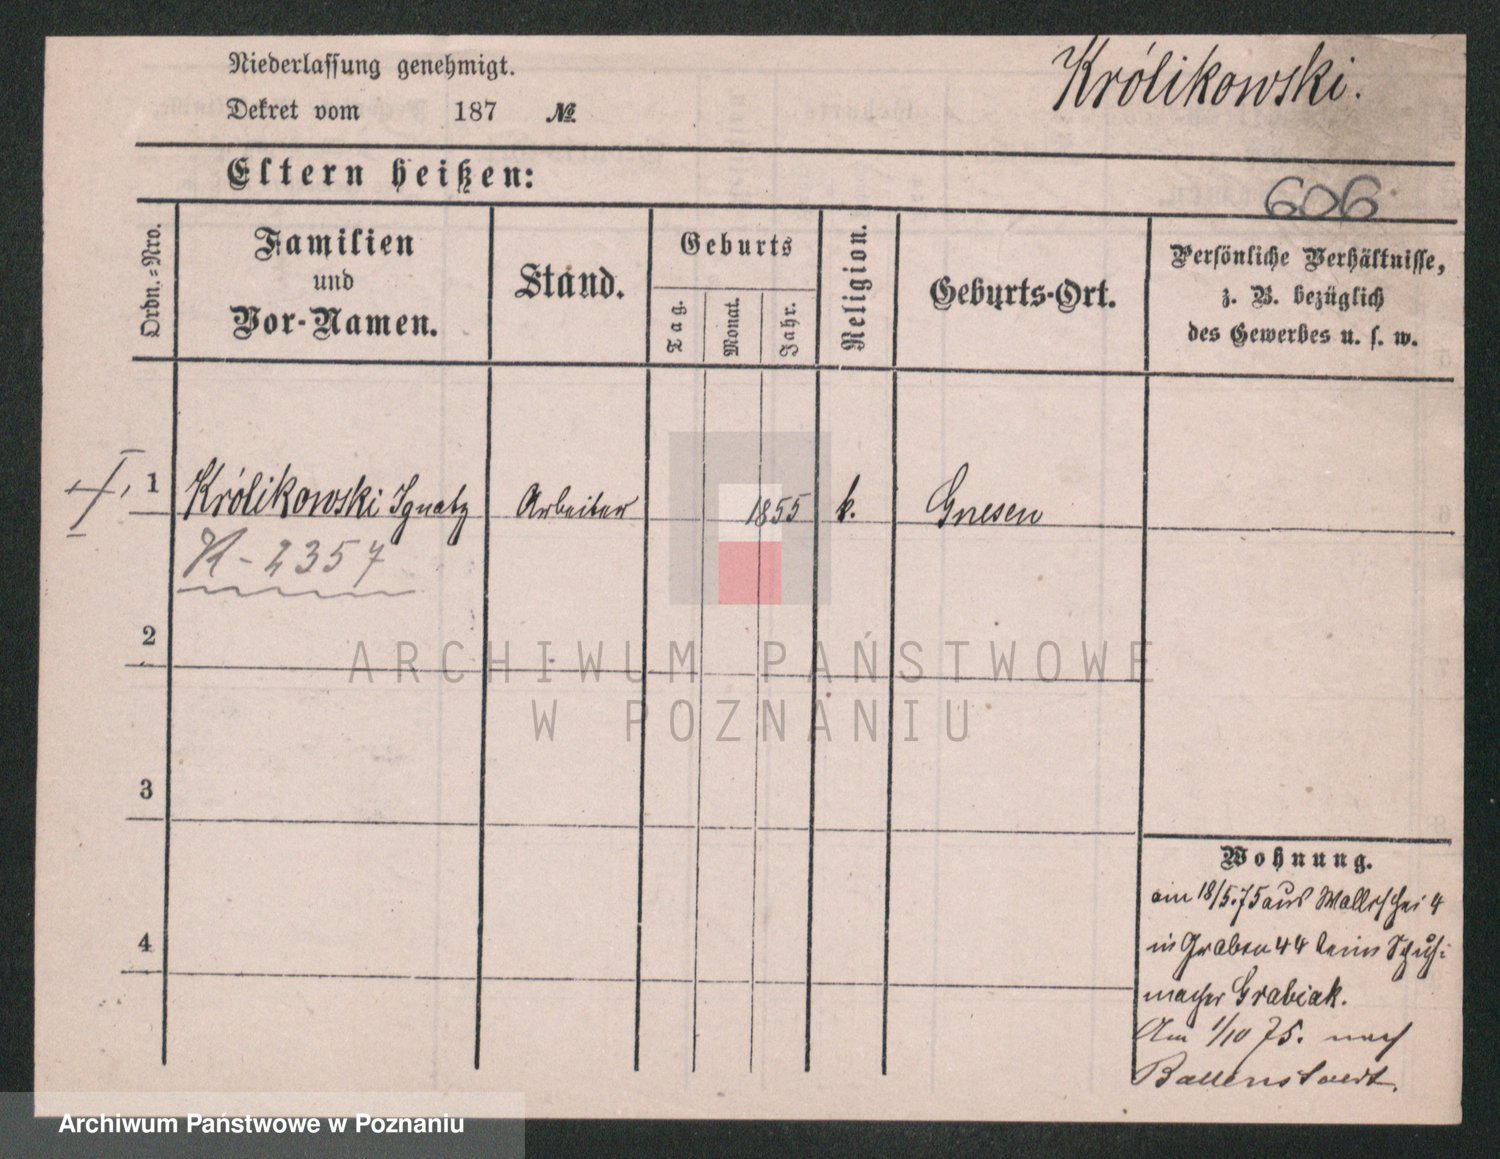 Niederlassung genehmigt.
Dekret vom 187 №
Królikowski.
Eltern heißen:
606
Ordn.=Nro.
Familien
und
Vor-Namen.
Stand.
Geburts
Tag.
Monat.
Jahr.
Religion.
Geburts-Ort.
Persönliche Verhältnisse,
z. B. bezüglich
des Gewerbes u. s. w.
1 Królikowski Ignatz Arbeiter 1855 k. Gnesen
K-2357
2
ARCHIWUM PAŃSTWOWE
W POZNANIU
3
4
Wohnung.
am 18/5.75 aus Wallischei 4
in Graben 44 beim Schuh-
macher Grabiak.
Am 1/10 75. nach
Ballenstaedt.
Archiwum Państwowe w Poznaniu